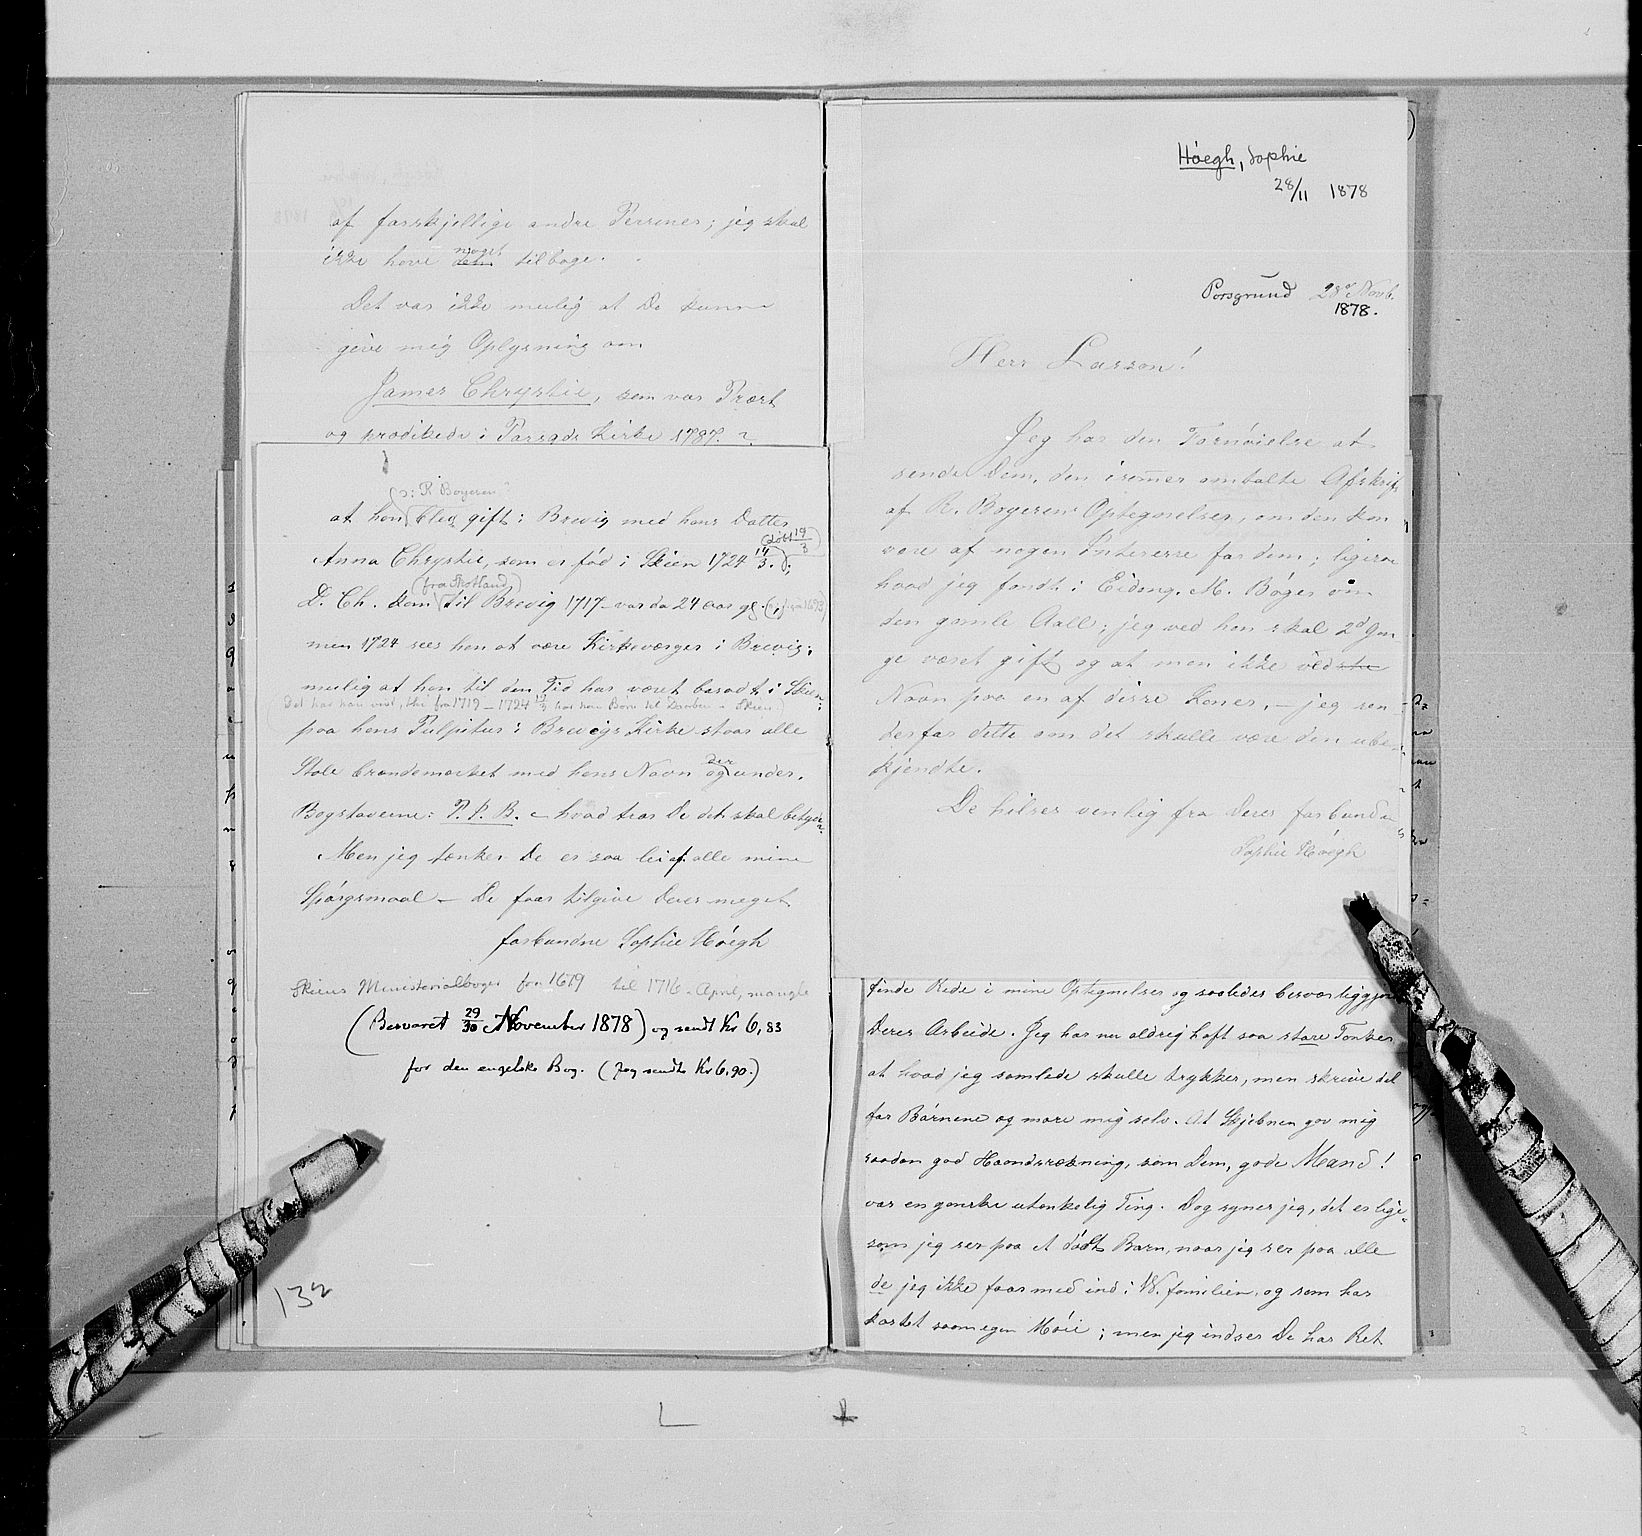 af forskjellige andre Personer; jeg skal
ikke have noget tilbage.
Det var ikke mulig at De kunne
give mig Oplysning om
James Chrystie, som var Præst
og prædikede i Porsgds Kirke 1787.?
(ɔ: R Boyesen)
at han blev gift i Brevig med hans Datter
(døbt 19/3)
Anna Chrystie, som er fød i Skien 1724 14/3.
(fra Skotland,)
D. Ch. kom til Brevig 1717 – var da 24 Aar gl.
men 1724 sees han at være Kirkeværger i Brevig;
mulig at han til den Tid har været bosadt i Skien;
Det har han vist, thi fra 1719 – 1724 har han Børn til Daaben i Skien.
paa hans Pulpitur i Brevigs Kirke staar alle
Stole brændemærket med hans Navn og derunder
Bogstaverne: P. P. B. – hvad tror De det skal betyde?
Men jeg tænker De er saa lei af alle mine
Spørgsmaal – De faar tilgive Deres meget
forbundne Sophie Høegh
Skiens Ministerialbøger fra 1679 til 1716 April, mangle
(Besvaret 29/30 November 1878) og sendt Kr 6,83
for den engelske Bog. (Jeg sendte Kr 6,90.)
132
Høegh, Sophie
28/11 1878
Porsgrund 28de Novb.
1878.
Herr Larson!
Jeg har den Fornøielse at
sende Dem, den isommer omtalte Afskrift
af R. Boyesens Optegnelser, om den kan
være af nogen Interesse for dem; ligesaa
hvad jeg fandt i Eidang. M. Bøger om
den gamle Aall; jeg ved han skal 2d Gan-
ge været gift og at man ikke ved
Navn paa en af disse Koner, – jeg sen-
der for dette om det skulle være den ube-
kjendte.
De hilses venlig fra Deres forbundne
Sophie Høegh
finde Rede i mine Optegnelser og saaledes besværliggjøre
Deres Arbeide. Jeg har nu aldrig haft saa store Tanker
at hvad jeg samlede skulle trykkes, men skrive det
for Børnene og more mig selv. At Skjebnen gav mig
saadan god Haandsrækning, som Dem, gode Mand!
var en ganske utenkelig Ting. Dog synes jeg, det er lige-
som jeg ser paa et dødt Barn, naar jeg ser paa alle
de jeg ikke faar med ind i W. familien, og som har
kostet saa megen Møie; men jeg indser De har Ret